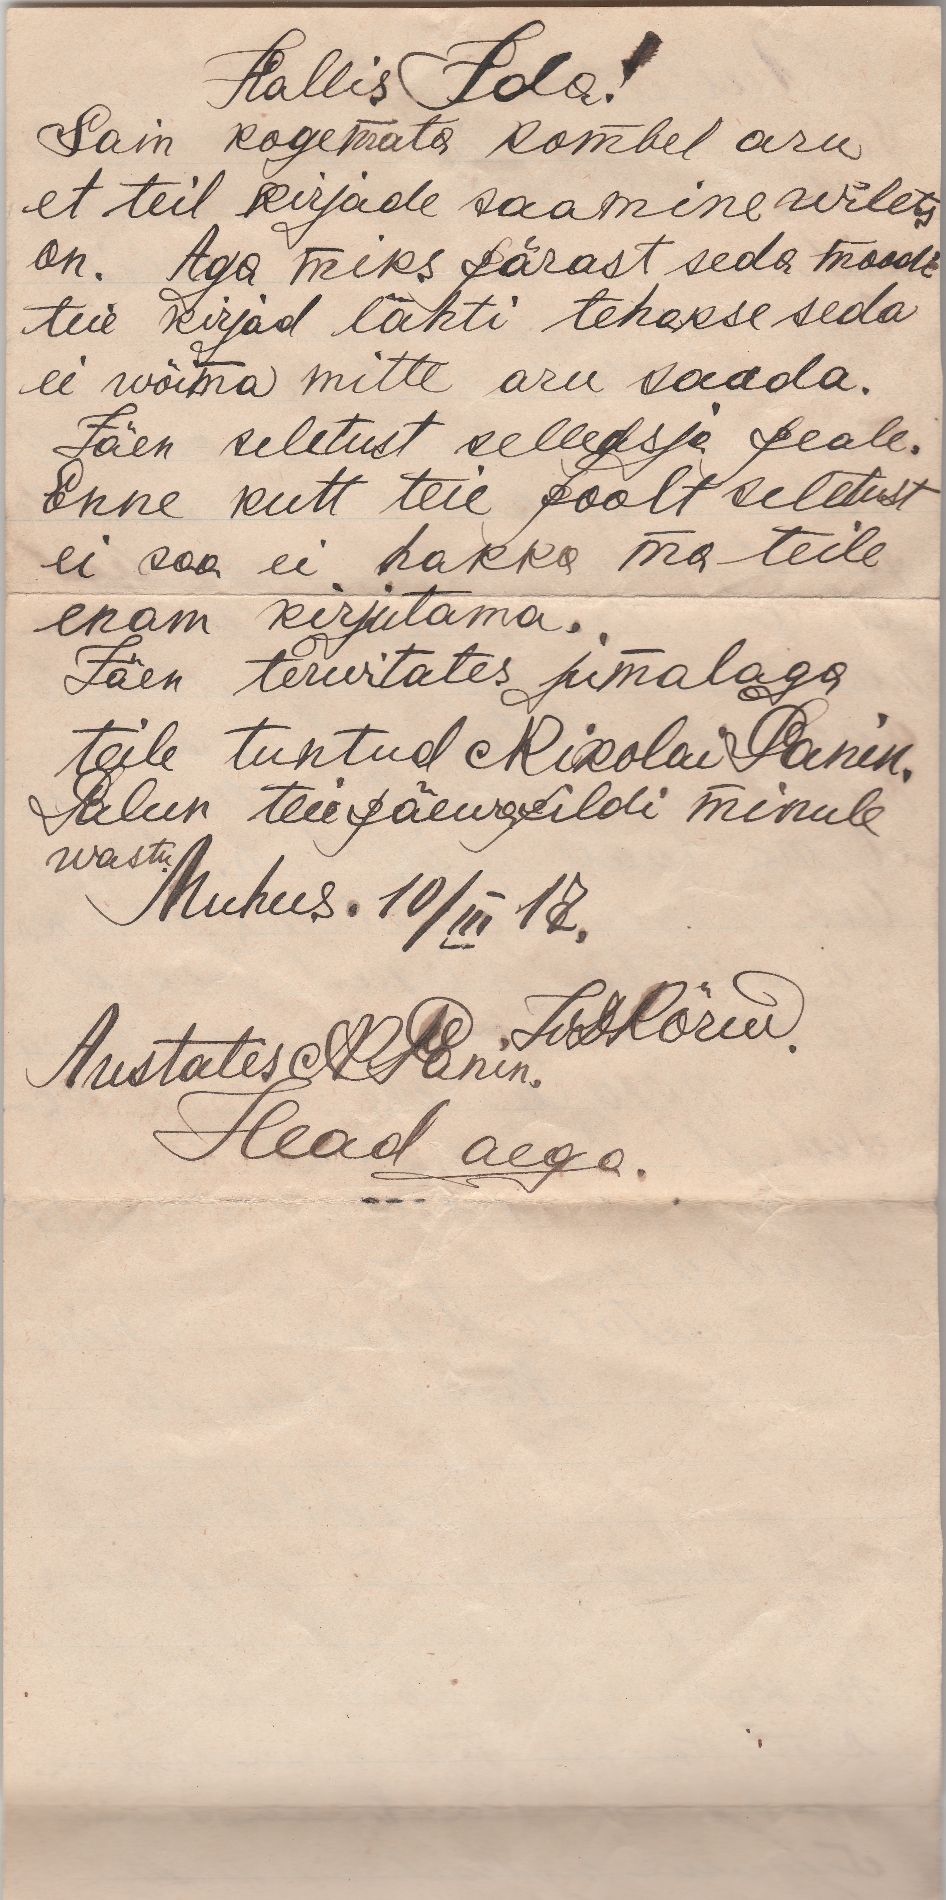 Kallis Ida!
Sain kogemata kombel aru
et teil kirjade saamine wilets
on. Aga miks pärast seda moodi
teie kirjad lahti tehakse seda
ei wõima mitte aru saada.
Jäen seletust selle asja peale.
Enne kutt teie poolt seletust
ei saa ei hakka ma teile
enam kirjutama.
Jäen terwitates jumalaga
teile tuntud Nikolai Panin.
Palun teie päewapildi minule
wastu.
Muhus. 10/III 17.
Austates N Panin.
Head aega.